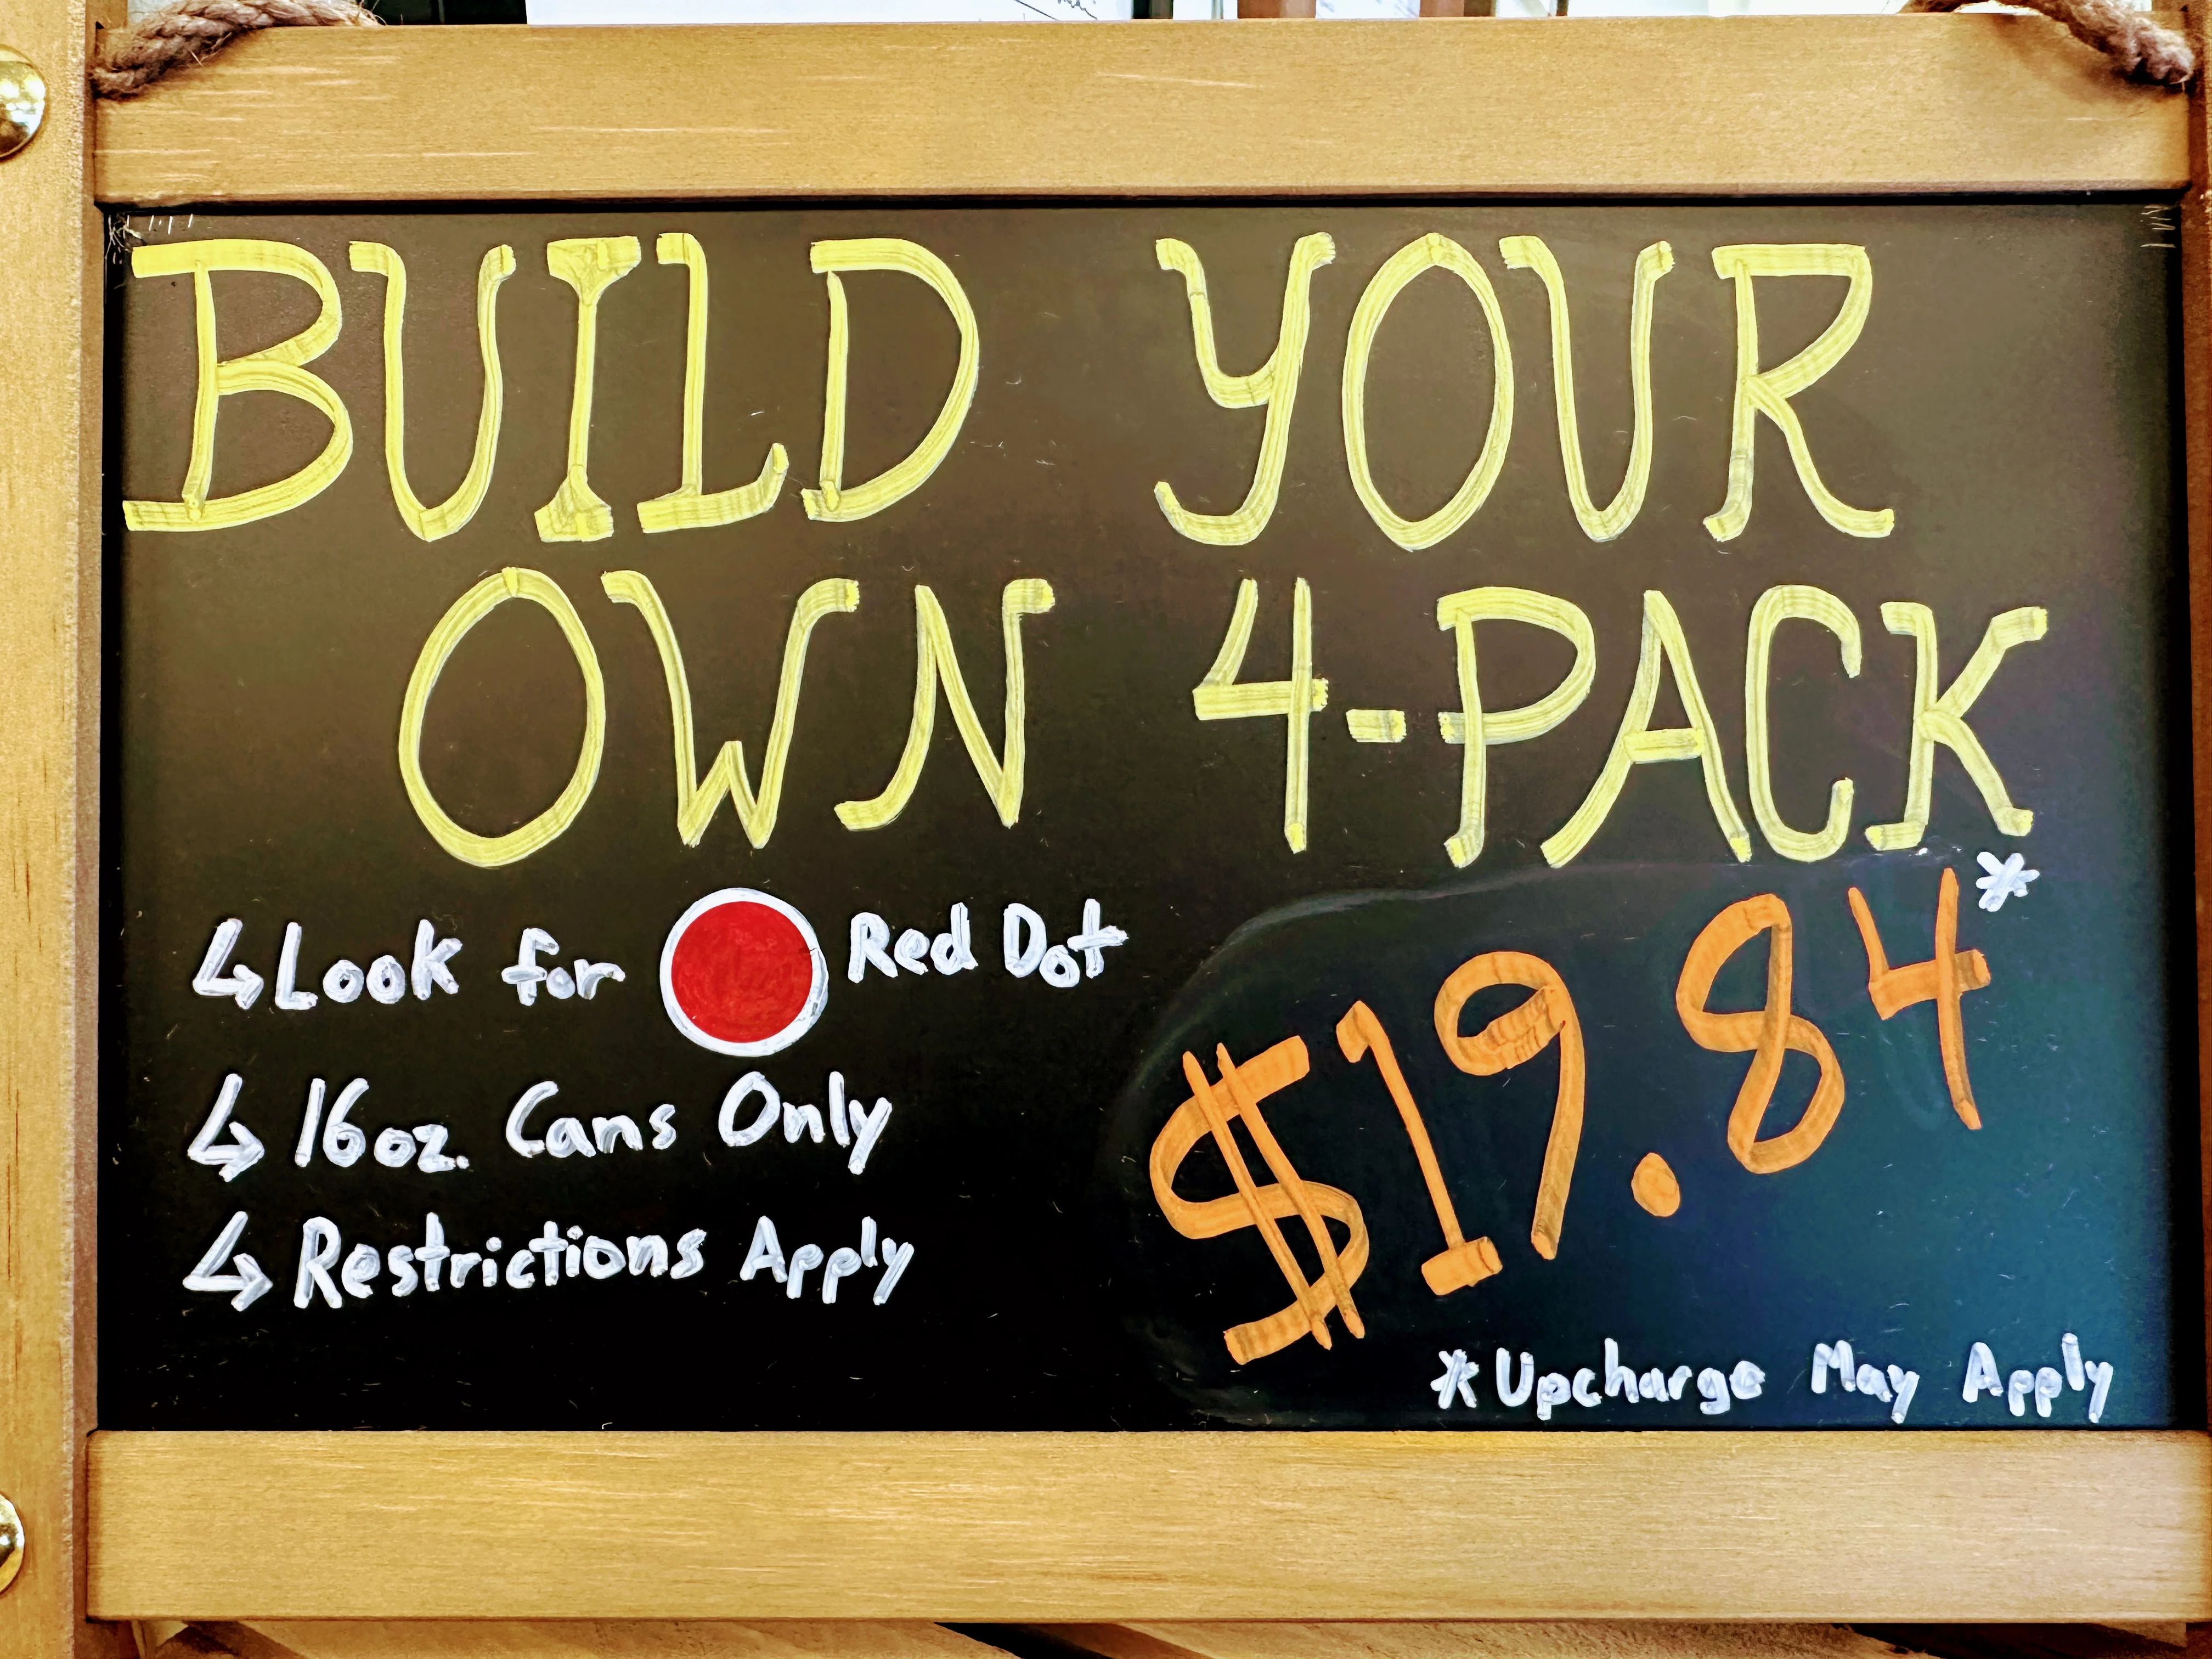 BUILD YOUR
OWN 4-PACK
↳ Look for Red Dot
↳ 16oz. Cans Only
↳ Restrictions Apply
$19.84*
*Upcharge May Apply